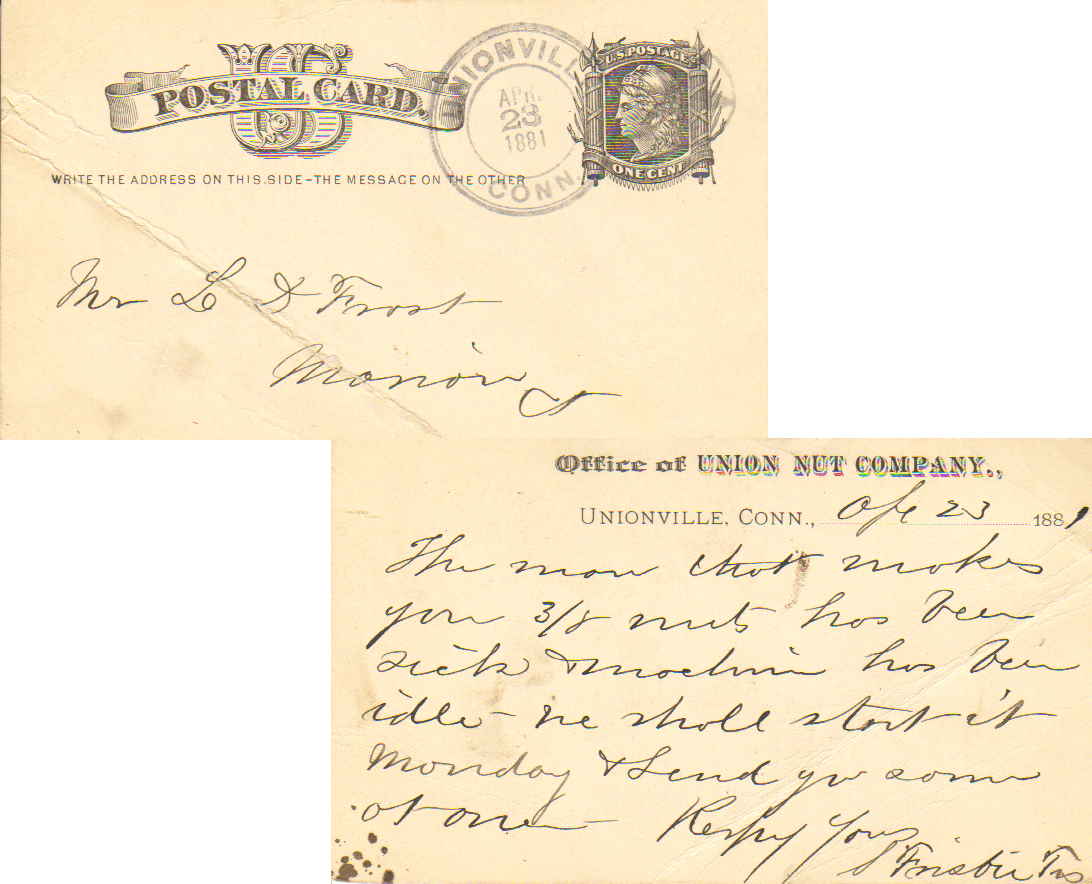 US
POSTAL CARD.
UNIONVILLE
APR.
23
1881
CONN.
U.S. POSTAGE
ONE CENT
WRITE THE ADDRESS ON THIS SIDE-THE MESSAGE ON THE OTHER
Mr L D Frost
Marion Ct
Office of UNION NUT COMPANY.,
UNIONVILLE, CONN., Ap 23 1881
The man that makes
you 3/8 nuts has been
sick & machine has been
idle - We shall start it
Monday & Send you some
at once - Respy Yours
Frisbie Trs